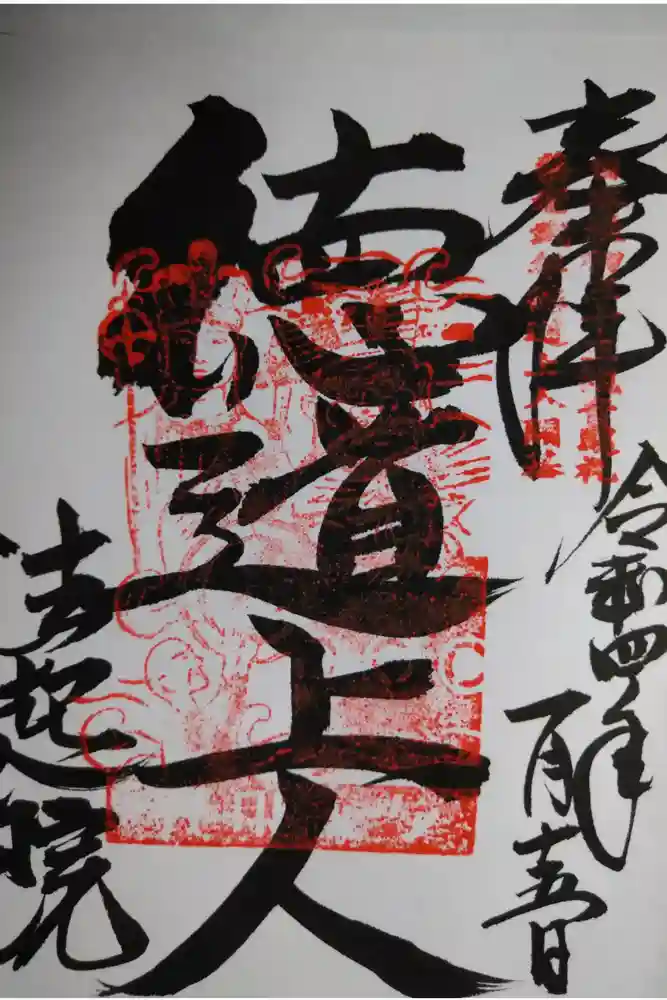 奉拝
令和四年
一月十五日
徳道上人
法起院